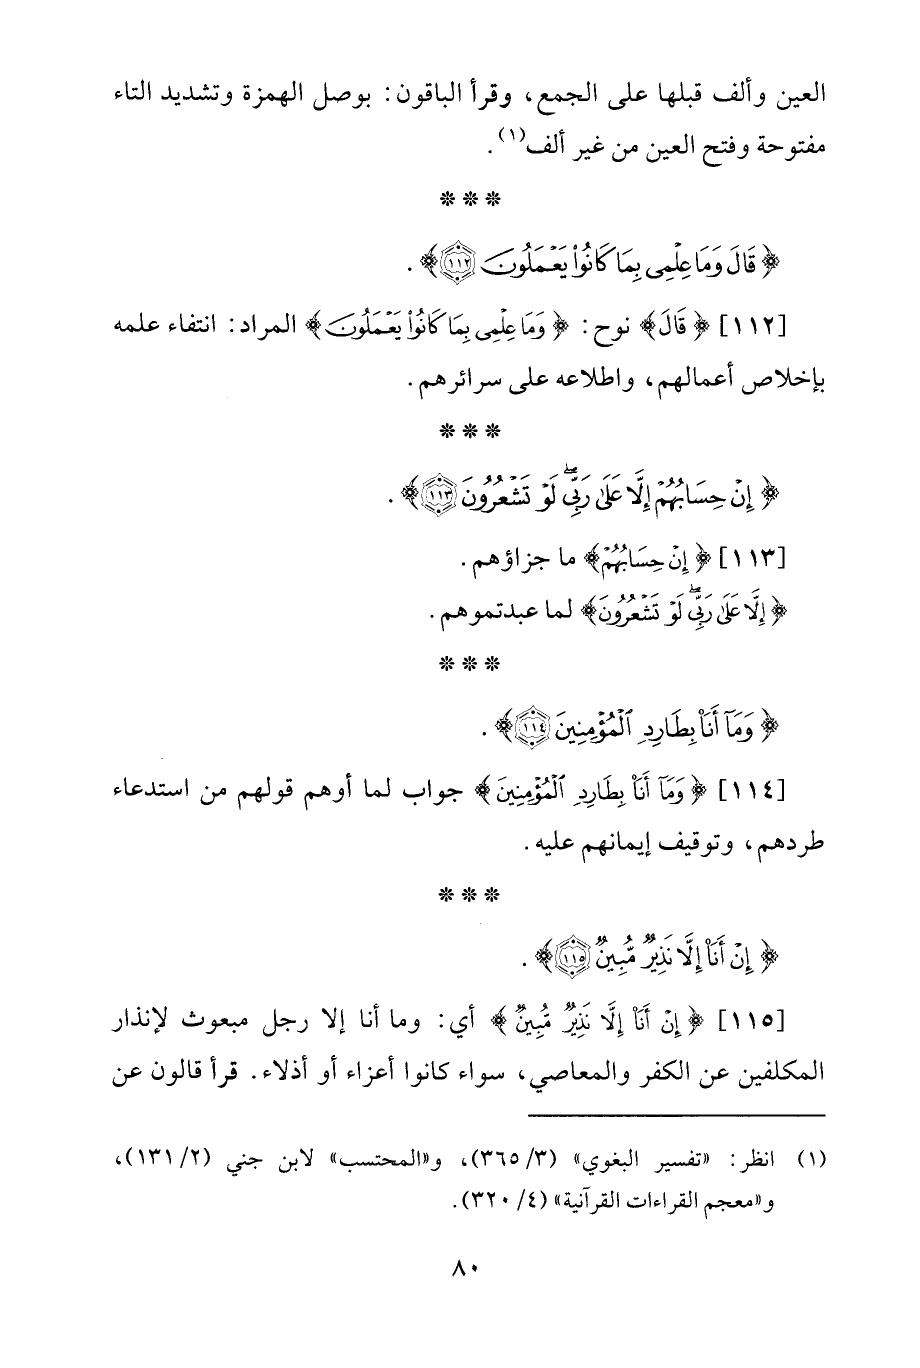 العين وألف قبلها على الجمع، وقرأ الباقون: بوصل الهمزة وتشديد التاء
مفتوحة وفتح العين من غير ألف(١).
* * *
﴿قَالَ وَمَا عِلْمِي بِمَا كَانُوا۟ يَعْمَلُونَ ١١٢﴾.
[١١٢] ﴿قَالَ﴾ نوح: ﴿وَمَا عِلْمِي بِمَا كَانُوا۟ يَعْمَلُونَ﴾ المراد: انتفاء علمه
بإخلاص أعمالهم، واطلاعه على سرائرهم.
* * *
﴿إِنْ حِسَابُهُمْ إِلَّا عَلَىٰ رَبِّي ۖ لَوْ تَشْعُرُونَ ١١٣﴾.
[١١٣] ﴿إِنْ حِسَابُهُمْ﴾ ما جزاؤهم.
﴿إِلَّا عَلَىٰ رَبِّي ۖ لَوْ تَشْعُرُونَ﴾ لما عبدتموهم.
* * *
﴿وَمَآ أَنَا۠ بِطَارِدِ ٱلْمُؤْمِنِينَ ١١٤﴾.
[١١٤] ﴿وَمَآ أَنَا۠ بِطَارِدِ ٱلْمُؤْمِنِينَ﴾ جواب لما أوهم قولهم من استدعاء
طردهم، وتوقيف إيمانهم عليه.
* * *
﴿إِنْ أَنَا۠ إِلَّا نَذِيرٌ مُّبِينٌ ١١٥﴾.
[١١٥] ﴿إِنْ أَنَا۠ إِلَّا نَذِيرٌ مُّبِينٌ﴾ أي: وما أنا إلا رجل مبعوث لإنذار
المكلفين عن الكفر والمعاصي، سواء كانوا أعزاء أو أذلاء. قرأ قالون عن
(١) انظر: «تفسير البغوي» (٣/ ٣٦٥)، و«المحتسب» لابن جني (٢/ ١٣١)،
و«معجم القراءات القرآنية» (٤/ ٣٢٠).
٨٠